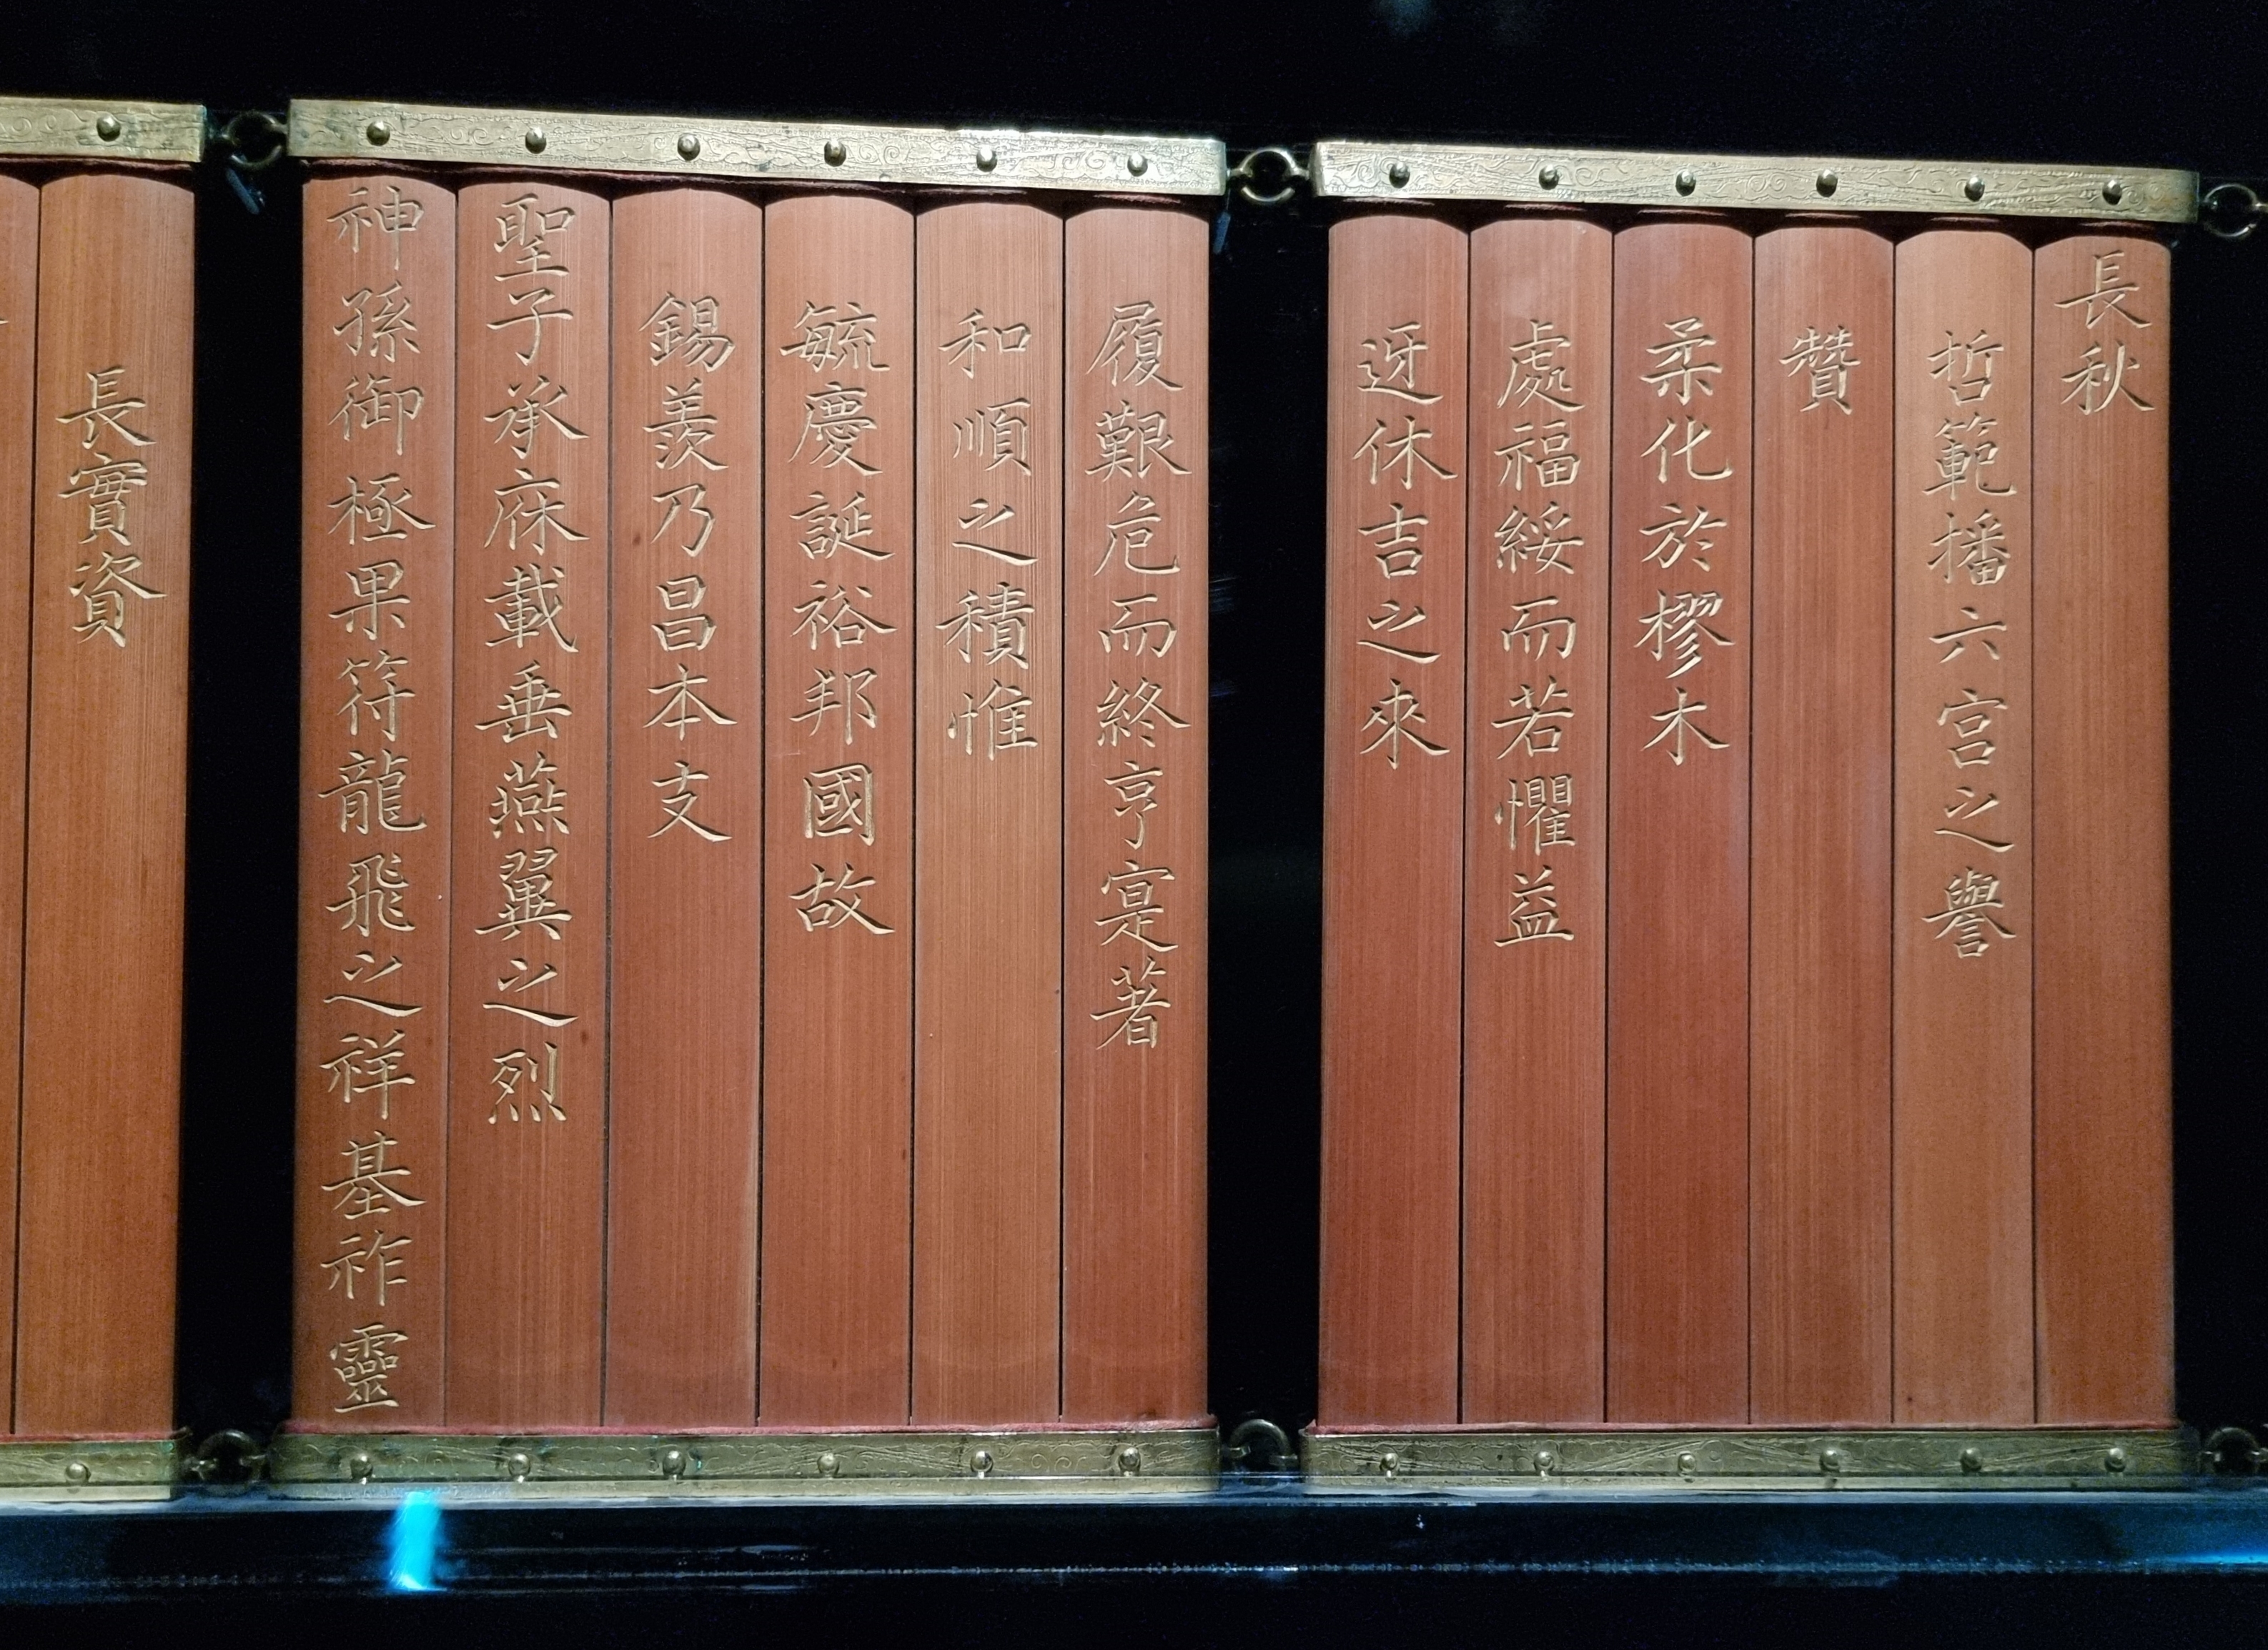 長秋
哲範播六宮之譽
贊
柔化於樛木
處福綏而若懼益
迓休吉之來
履艱危而終亨寔著
和順之積惟
毓慶誕裕邦國故
錫羨乃昌本支
聖子承庥載垂燕翼之烈
神孫御極果符龍飛之祥基祚靈
長實資